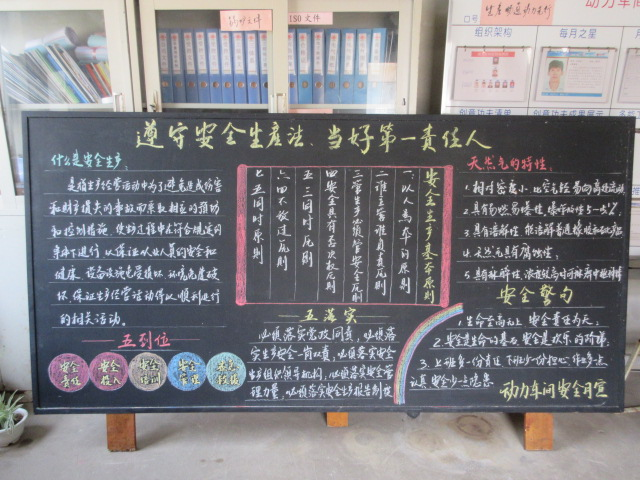 ISO 文件
组织架构
每月之星
遵守安全生产法、当好第一责任人
什么是安全生产:
是指生产经营活动中为了避免造成伤害
和财产损失的事故而采取相应的预防
和控制措施,使生产过程中在符合规定的
条件下进行,以保证从业人员的安全和
健康、设备设施免受损坏、环境免遭破
坏,保证生产经营活动得以顺利进行
的相关活动。
五到位
安全责任
安全投入
安全培训
安全管理
应急救援
安全生产基本原则
一、以人为本的原则
二、谁主管谁负责原则
三、管生产必须管安全原则
四、安全具有否决权原则
五、三同时原则
六、四不放过原则
七、五同时原则
五落实
必须落实党政同责,必须落
实生产安全一岗双责,必须落实安全
生产组织领导机构,必须落实安全管
理力量,必须落实安全生产报告制度
天然气的特性:
1.相对密度小,比空气轻,易向高处流动
4.天然气具有腐蚀性;
安全警句
1.生命至高无上,安全责任为天;
2.安全是生命的基石,安全是欢乐的阶梯
3.上班多一份责任,下班少一份担心,作业多点
认真,安全少一点隐患
动力车间安全月宣